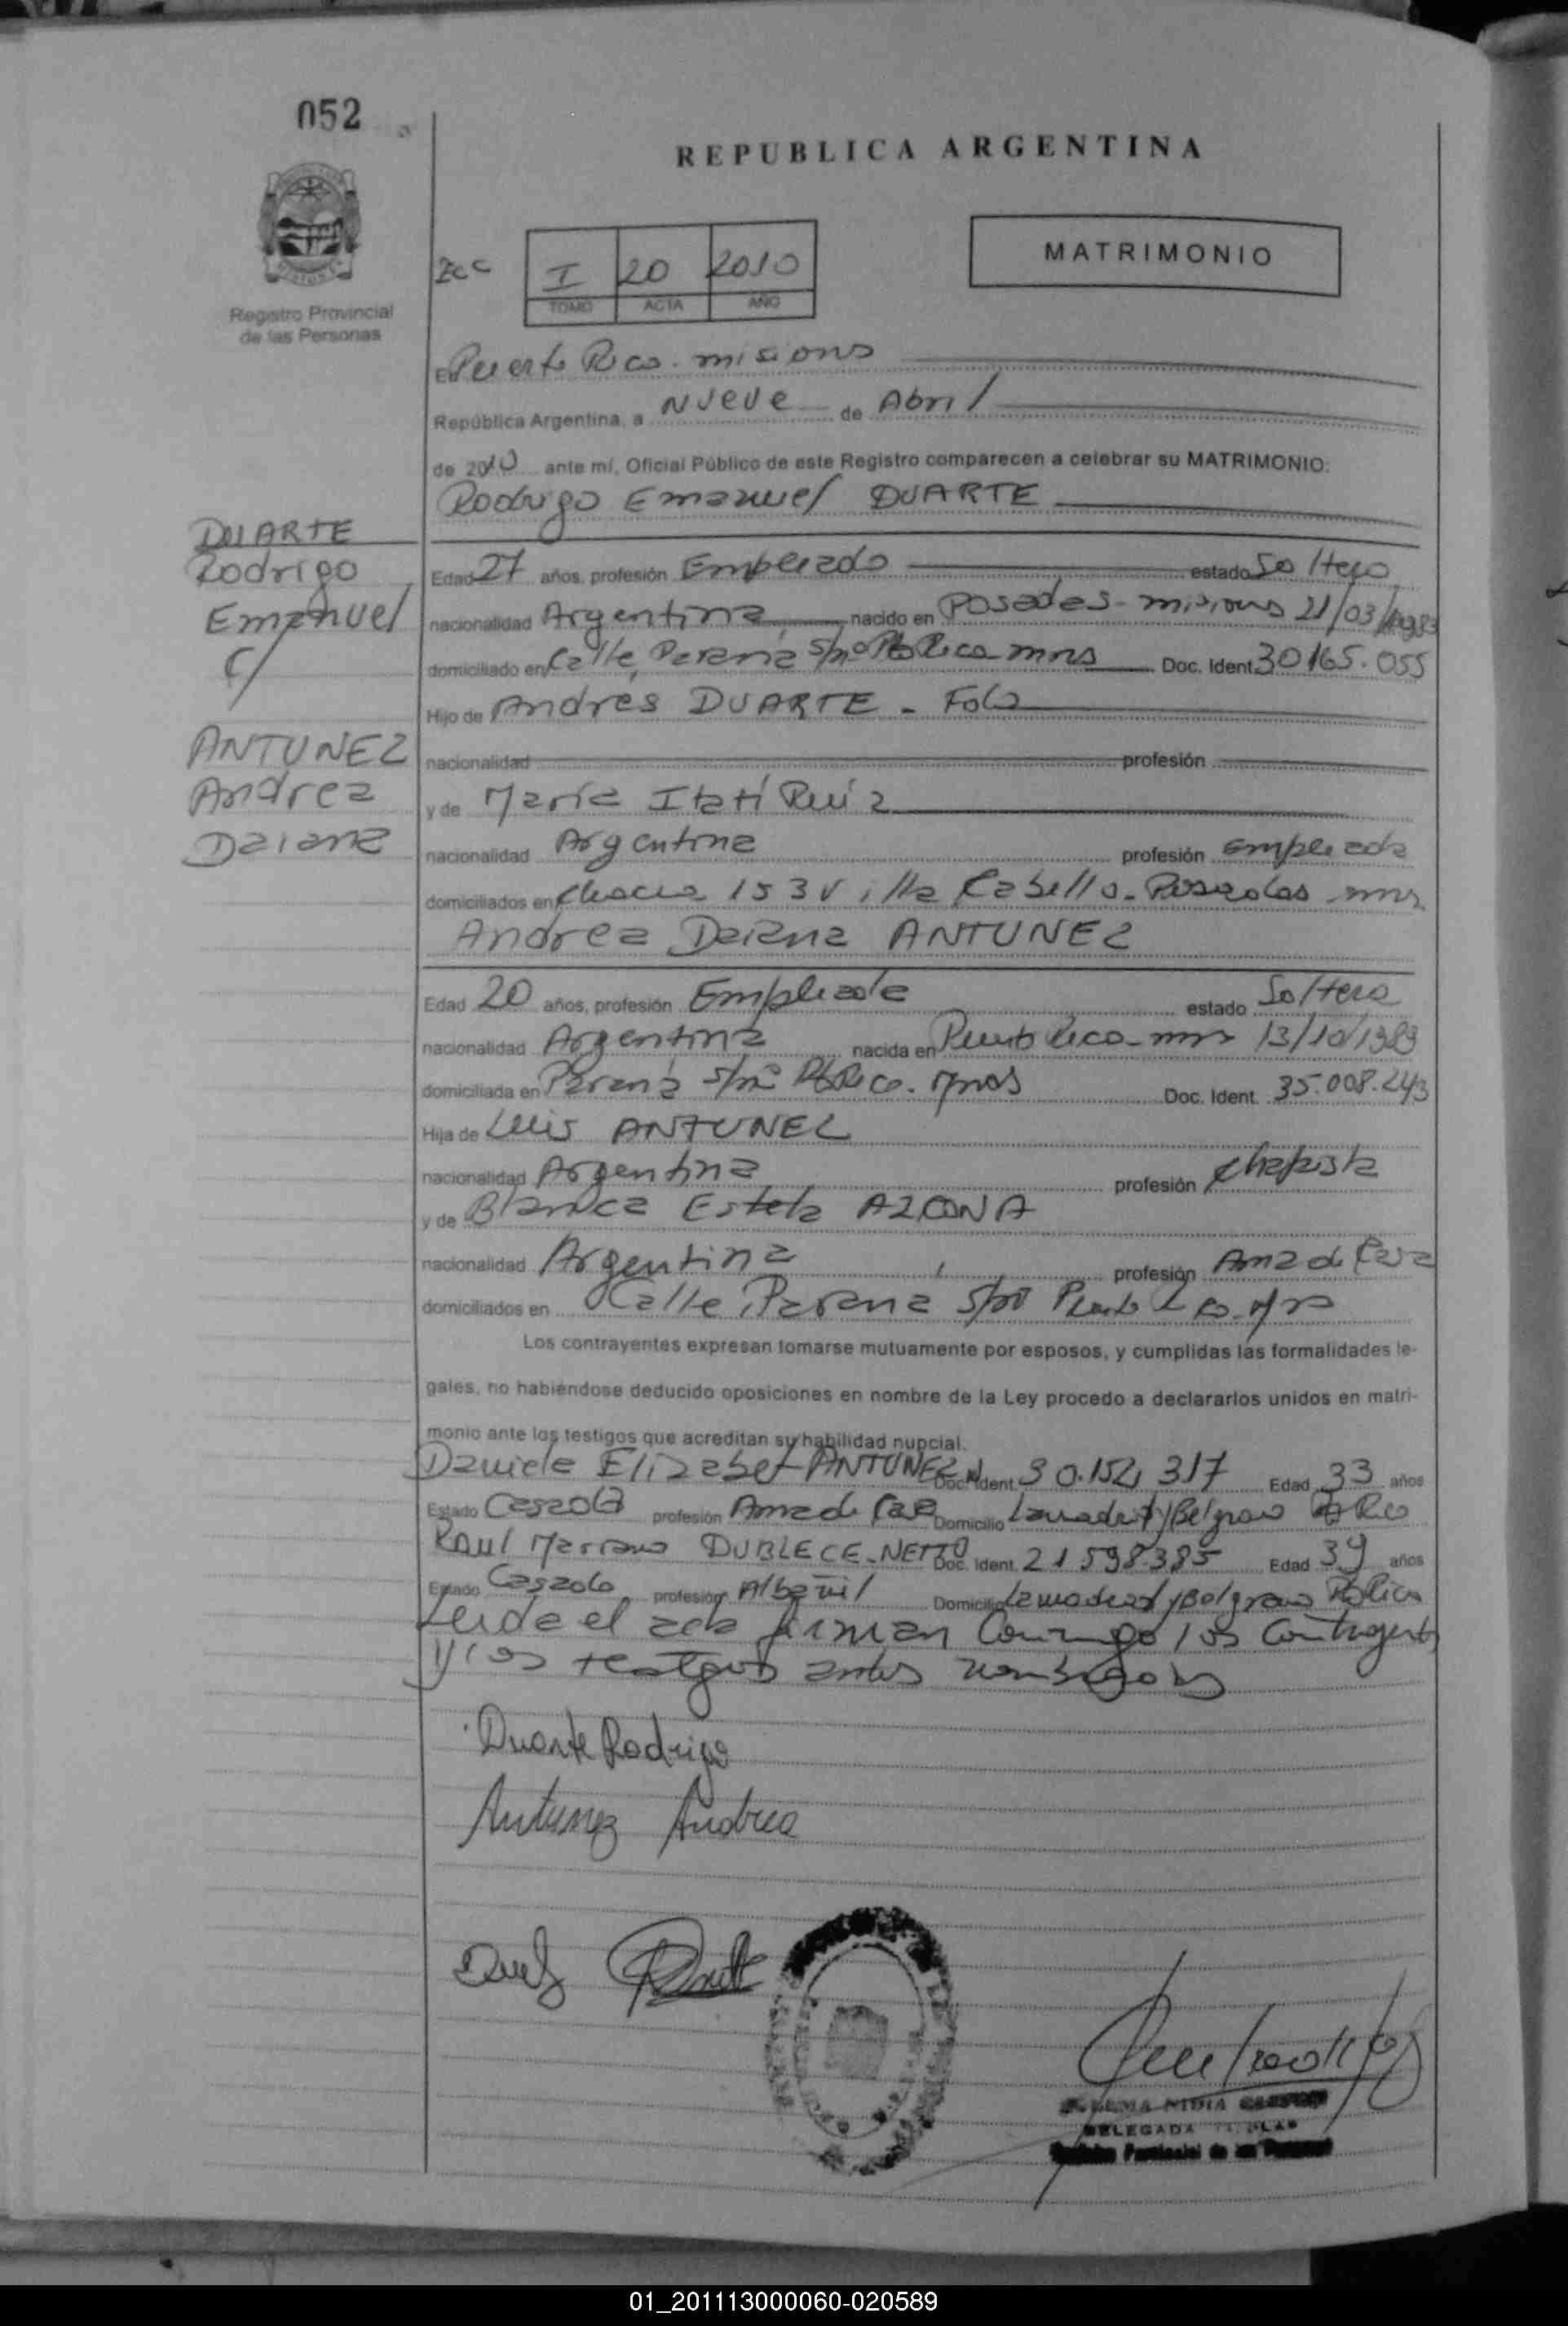 052
REPUBLICA ARGENTINA
MATRIMONIO
I 20 2010
TOMO ACTA AÑO
Registro Provincial
de las Personas
En Puerto Rico - misiones
República Argentina, a Nueve de Abril
de 2010 ante mí, Oficial Público de este Registro comparecen a celebrar su MATRIMONIO:
Rodrigo Emanuel DUARTE
DUARTE
Rodrigo
Emanuel
c/
ANTUNEZ
Andrea
Daiana
Edad 27 años, profesión Empleado estado Soltero
nacionalidad Argentina nacido en Posadas - misiones 21/03/1983
domiciliado en Calle Paraná s/nº Pto Rico mnes Doc. Ident. 30165.055
Hijo de Andrés DUARTE - Fdo
nacionalidad profesión
y de María Itatí Ruiz
nacionalidad Argentina profesión empleada
domiciliados en Chacra 153 Villa Cabello - Posadas mns
Andrea Daiana ANTUNEZ
Edad 20 años, profesión Empleada estado Soltera
nacionalidad Argentina nacida en Puerto Rico - mns 13/10/1989
domiciliada en Paraná s/nº Pto Rico - Mnes Doc. Ident. 35.008.243
Hija de Luis ANTUNEZ
nacionalidad Argentina profesión chapista
y de Blanca Estela AZCONA
nacionalidad Argentina profesión Ama de Casa
domiciliados en Calle Paraná s/nº Puerto Rico - Mns
Los contrayentes expresan tomarse mutuamente por esposos, y cumplidas las formalidades le-
gales, no habiéndose deducido oposiciones en nombre de la Ley procedo a declararlos unidos en matri-
monio ante los testigos que acreditan su habilidad nupcial.
Daniela Elizabet ANTUNEZ Doc. Ident. 30.152.317 Edad 33 años
Estado Casada profesión Ama de Casa Domicilio Lamadrid y Belgrano Pto Rico
Raul Mariano DUBLECE-NETTO Doc. Ident. 21598.385 Edad 39 años
Estado Casado profesión Albañil Domicilio Lamadrid y Belgrano Pto Rico
Leida el acta firman Conmigo los contrayentes
y los testigos antes nombrados
Duarte Rodrigo
Antunez Andrea
NIDIA
DELEGADA TITULAR
Registro Provincial de las Personas
01_201113000060-020589